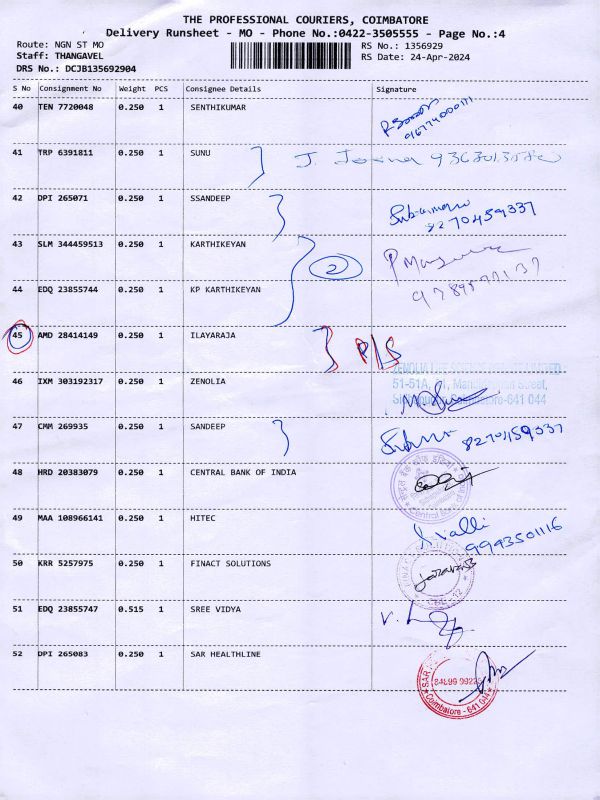 THE PROFESSIONAL COURIERS, COIMBATORE
Delivery Runsheet - MO - Phone No.:0422-3505555 - Page No.:4
Route: NGN ST MO
RS No.: 1356929
Staff: THANGAVEL
RS Date: 24-Apr-2024
DRS No.: DCJB135692904
S No Consignment No Weight PCS Consignee Details Signature
40 TEN 7720048 0.250 1 SENTHIKUMAR
41 TRP 6391811 0.250 1 SUNU
42 DPI 265071 0.250 1 SSANDEEP
8270459337
43 SLM 344459513 0.250 1 KARTHIKEYAN
2
44 EDQ 23855744 0.250 1 KP KARTHIKEYAN
45 AMD 28414149 0.250 1 ILAYARAJA
46 IXM 303192317 0.250 1 ZENOLIA
51-51A, Street,
-641 044
47 CMM 269935 0.250 1 SANDEEP 8270459337
48 HRD 20383079 0.250 1 CENTRAL BANK OF INDIA
Central Bank of
49 MAA 108966141 0.250 1 HITEC Valli
9993501116
50 KRR 5257975 0.250 1 FINACT SOLUTIONS
51 EDQ 23855747 0.515 1 SREE VIDYA
52 DPI 265083 0.250 1 SAR HEALTHLINE
SAR
Coimbatore - 641